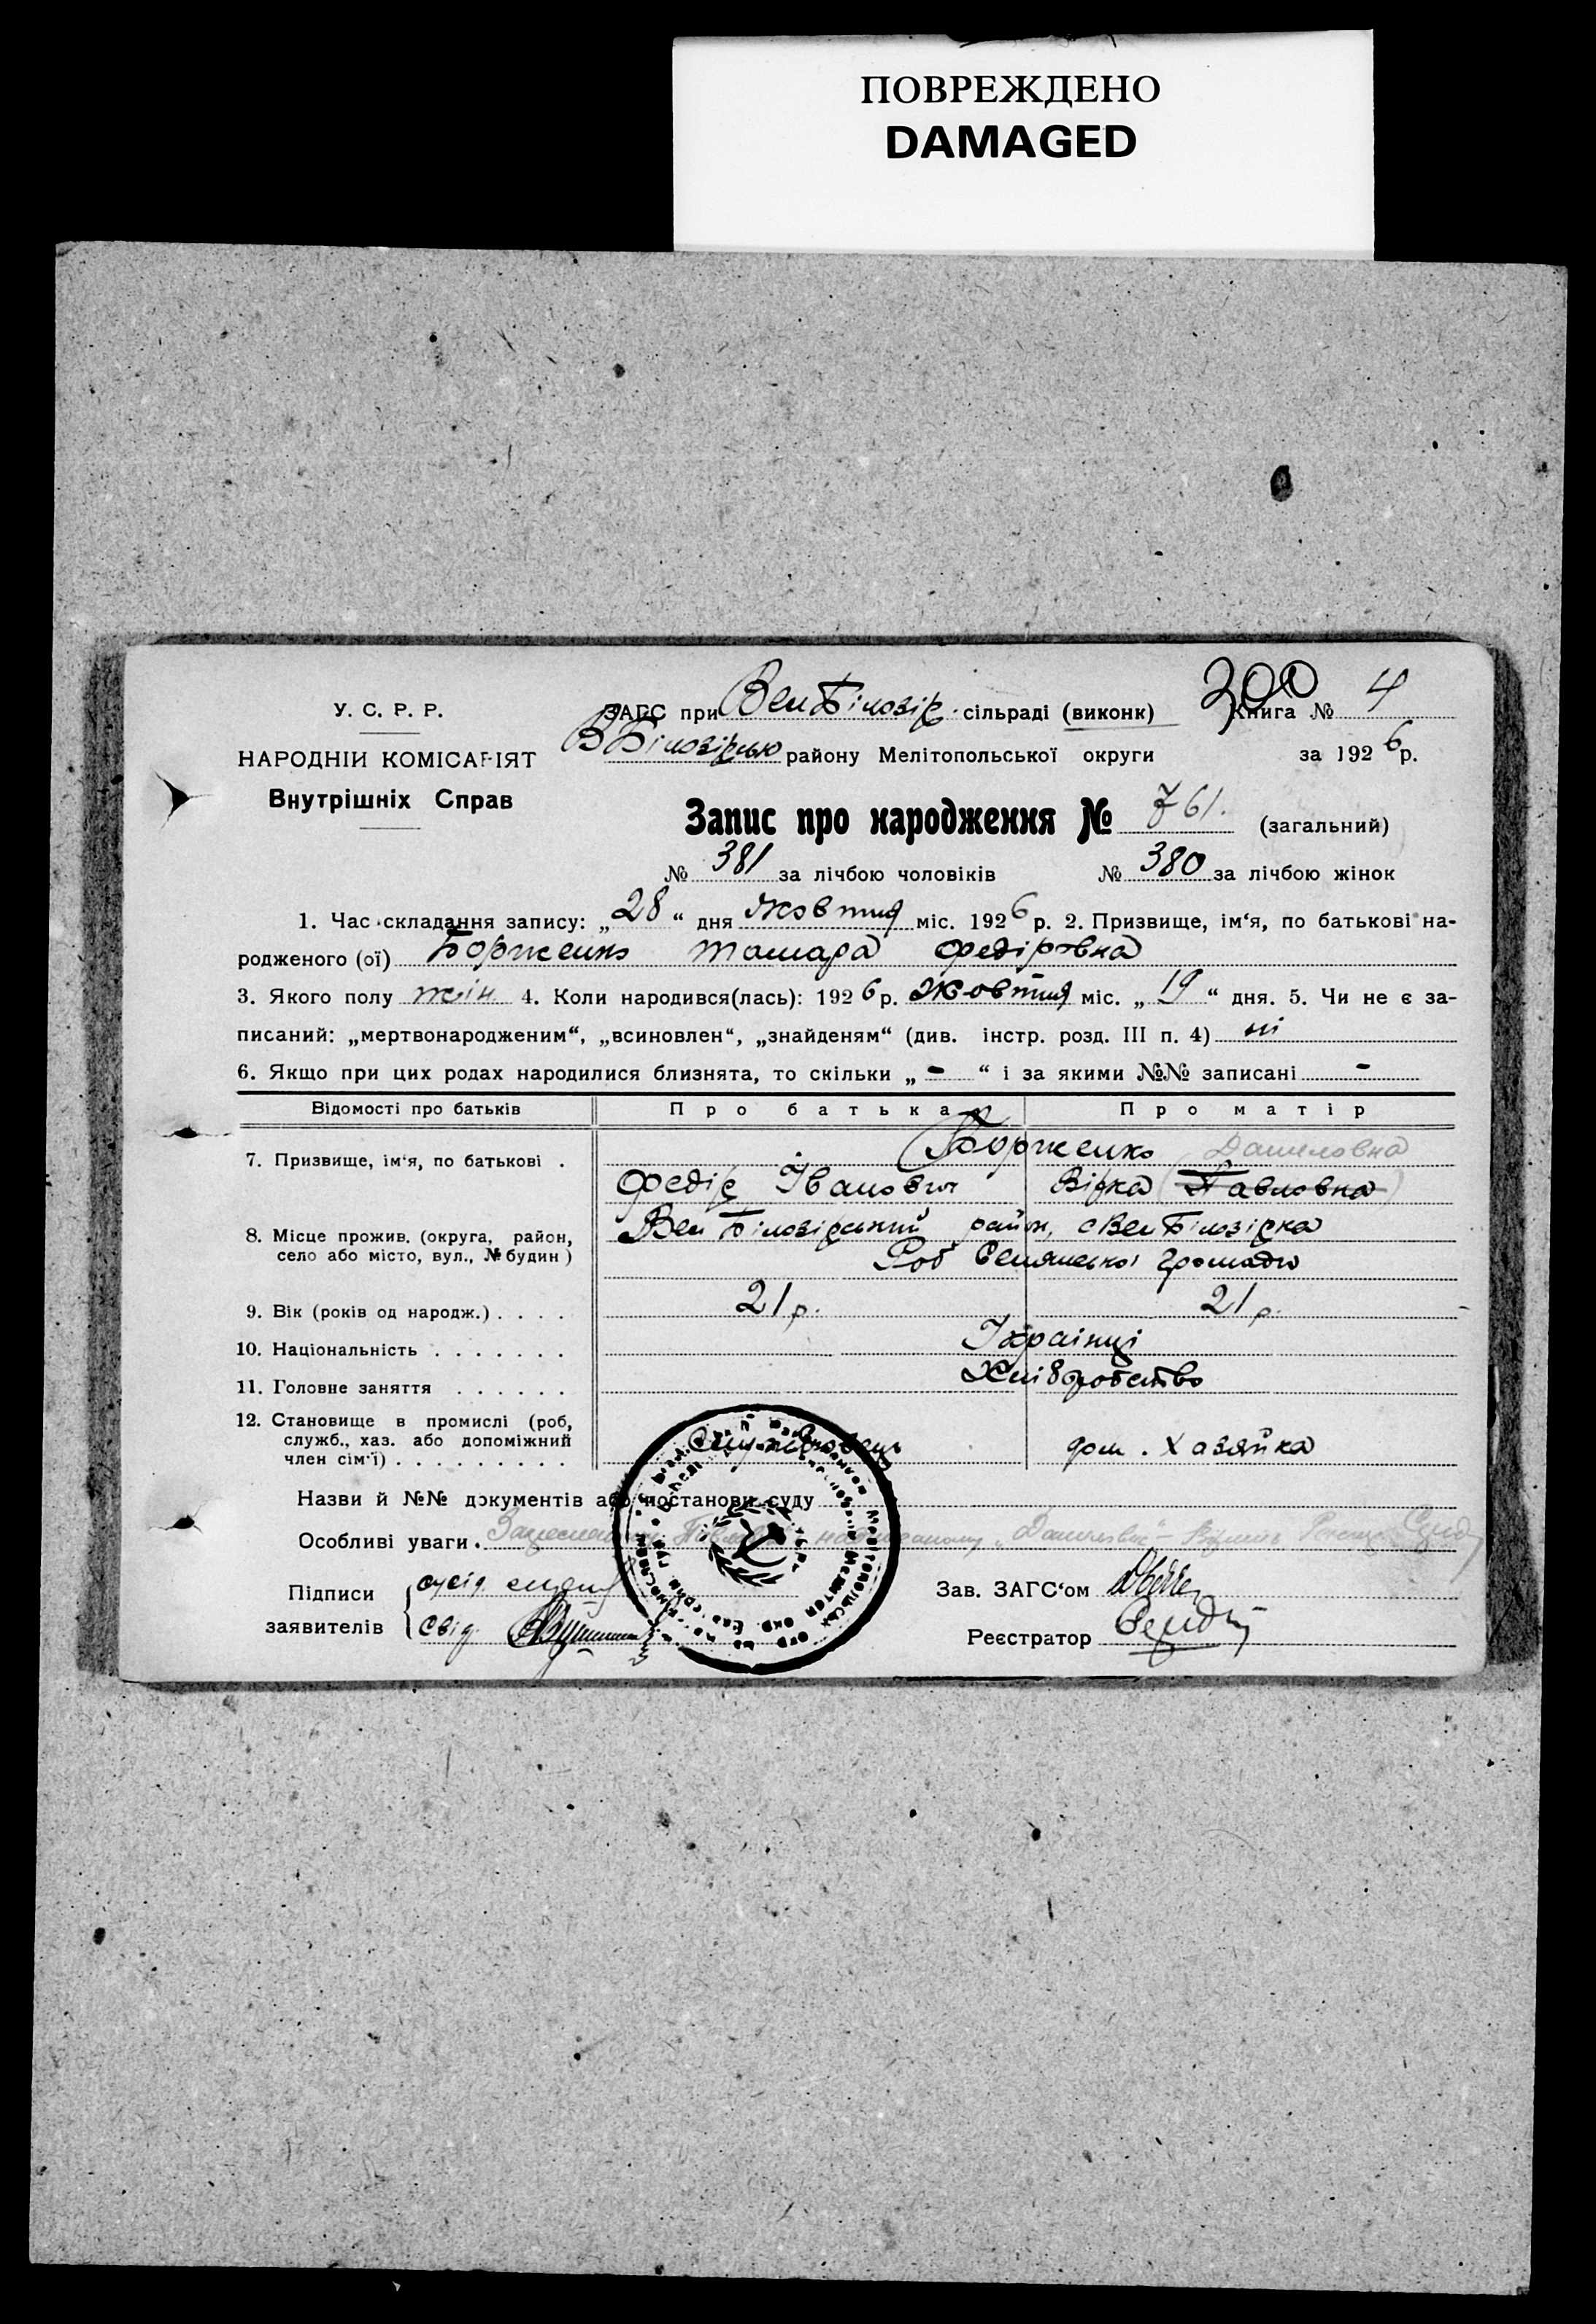 ПОВРЕЖДЕНО
DAMAGED
300
У. С. Р. Р.
НАРОДНІЙ КОМІСАРІЯТ
Внутрішніх Справ
ЗАГС при Вел Білозір. сільраді (виконк) Книга № 4
В Білозірсько району Мелітопольської округи за 1926 р.
Запис про народження № 761. (загальний)
№ 381 за лічбою чоловіків № 380 за лічбою жінок
1. Час складання запису: „28“ дня жовтня міс. 1926 р. 2. Призвище, ім‘я, по батькові на-
родженого (ої) Борженко Тамара Федіровна
3. Якого полу жін 4. Коли народився(лась): 1926 р. Жовтня міс. „19“ дня. 5. Чи не є за-
писаний: „мертвонародженим“, „всиновлен“, „знайденям“ (див. інстр. розд. III п. 4) ні
6. Якщо при цих родах народилися близнята, то скільки „-“ і за якими №№ записані -
Відомості про батьків Про батька Про матір
7. Призвище, ім‘я, по батькові . Борженко Даниловна
Федір Іванович Вірка (Павловна)
8. Місце прожив. (округа, район, Вел Білозірський район, с Вел Білозірка
село або місто, вул., № будин) Роб Селянської громади
9. Вік (років од народж.) . . . . 21 р. 21 р.
10. Національність . . . . . . . Українці
11. Головне заняття . . . . . . Хліборобство
12. Становище в промислі (роб,
служб., хаз. або допоміжний
член сім‘ї) . . . . . . . . . дом. хазяйка
Назви й №№ документів або постанови суду
Особливі уваги. „Даниловна“ –
Підписи
заявителів
свід.
Зав. ЗАГС‘ом
Реєстратор